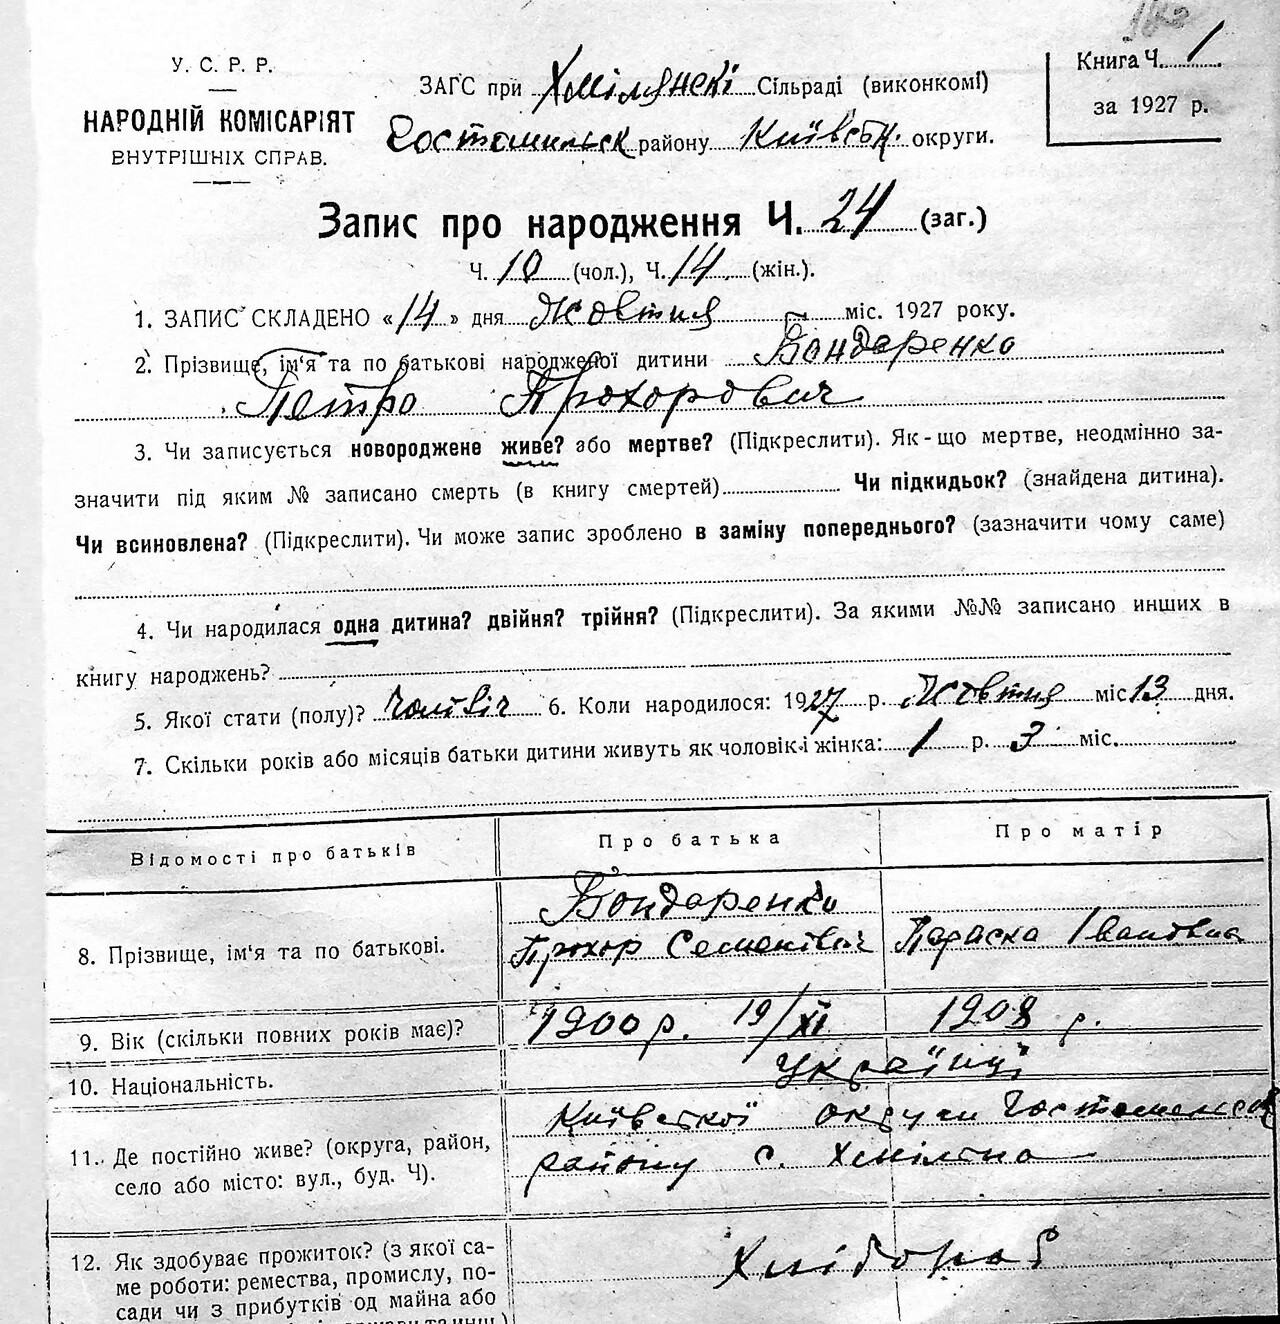 У. С. Р. Р.
НАРОДНІЙ КОМІСАРІЯТ
ВНУТРІШНІХ СПРАВ.
ЗАГС при Хмілянскі Сільраді (виконкомі)
Гостомильск району Київськ. округи.
Книга Ч. 1
за 1927 р.
Запис про народження Ч. 24 (заг.)
Ч. 10 (чол.), Ч. 14 (жін.).
1. ЗАПИС СКЛАДЕНО «14» дня Жовтня міс. 1927 року.
2. Прізвище, ім'я та по батькові народженої дитини Бондаренко
Петро Прохорович
3. Чи записується новороджене живе? або мертве? (Підкреслити). Як-що мертве, неодмінно за-
значити під яким № записано смерть (в книгу смертей) Чи підкидьок? (знайдена дитина).
Чи всиновлена? (Підкреслити). Чи може запис зроблено в заміну попереднього? (зазначити чому саме)
4. Чи народилася одна дитина? двійня? трійня? (Підкреслити). За якими №№ записано инших в
книгу народжень?
5. Якої стати (полу)? Чоловіч 6. Коли народилося: 1927 р. Жовтня міс 13 дня.
7. Скільки років або місяців батьки дитини живуть як чоловік і жінка: 1 р. 3 міс.
Відомості про батьків Про батька Про матір
Бондаренко
8. Прізвище, ім'я та по батькові. Прохор Семенович Параска Івановна
9. Вік (скільки повних років має)? 1900 р. 19/XI 1908 р.
10. Національність. Українці
11. Де постійно живе? (округа, район, Київської округи
село або місто: вул., буд. Ч). району с. Хмільна
12. Як здобуває прожиток? (з якої са-
ме роботи: ремества, промислу, по- Хлібороб
сади чи з прибутків од майна або